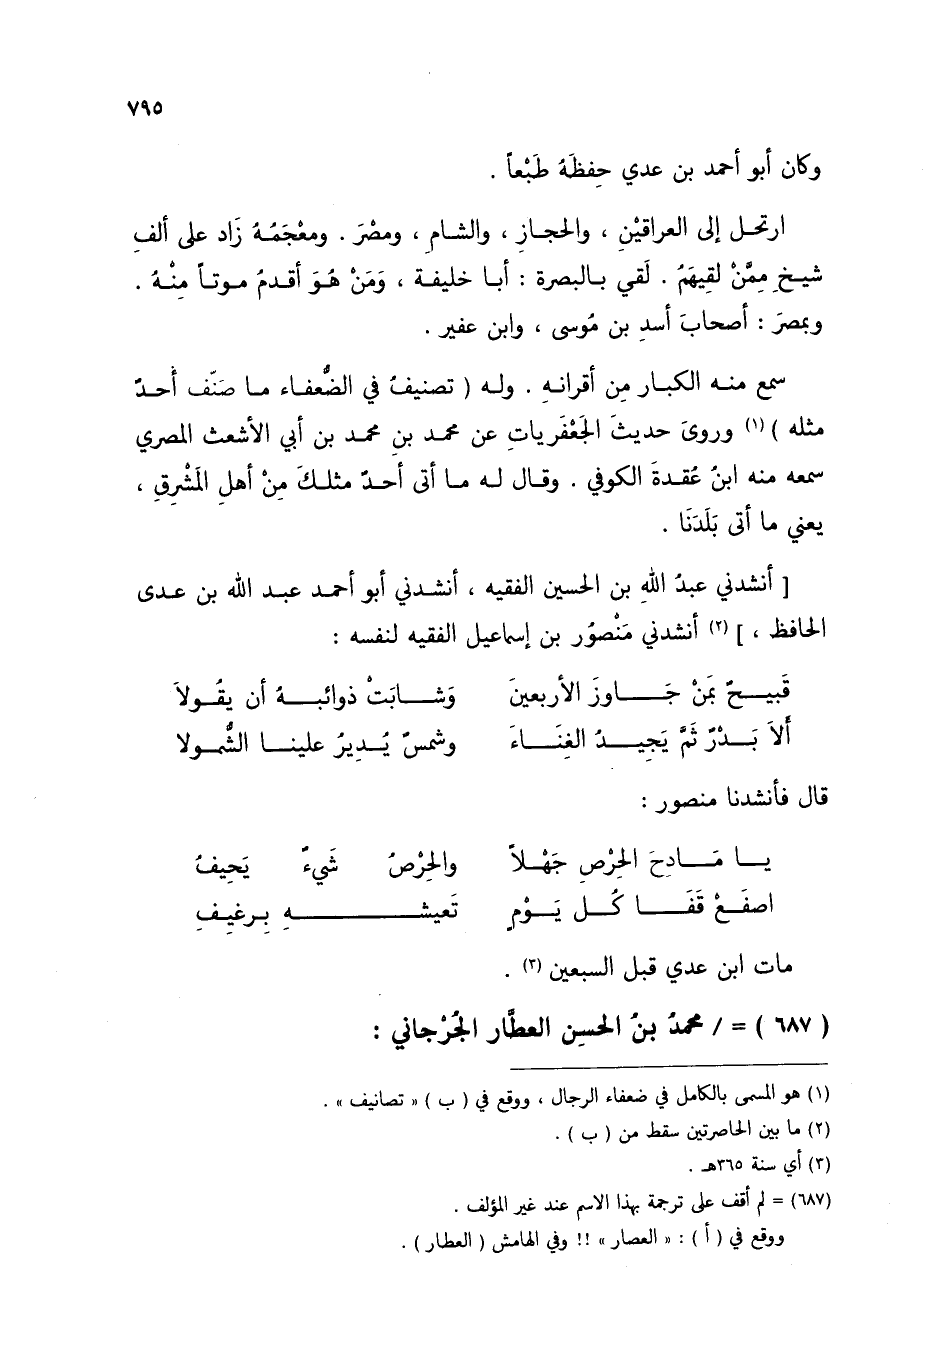 ٧٩٥
وكان أبو أحمد بن عدي حِفظَهُ طَبْعاً .
ارتحل إلى العراقيْنِ ، والحجازِ ، والشامِ ، ومصْرَ . ومعْجَمُهُ زَاد على ألفِ
شيخٍ مِمَّنْ لقِيهَمُ . لَقي بالبصرة : أبا خليفة ، وَمَنْ هُوَ أقدمُ موتاً مِنْهُ .
وبمصرَ : أصحابَ أسدِ بن مُوسى ، وابن عفير .
سمع منه الكبار مِن أقرانهِ . وله ( تصنيفُ في الضُّعفاء ما صَنّف أَحدٌ
مثله )(١) وروىَ حديثَ الجَعْفَريات عن محمد بن محمد بن أبي الأشعث المصري
سمعه منه ابنُ عُقدةَ الكوفي . وقال له ما أتى أحدٌ مثلكَ مِنْ أهلِ المَشْرقِ ،
يعني ما أتى بَلَدَنَا .
[ أنشدني عبدُ اللهِ بن الحسين الفقيه ، أنشدني أبو أحمد عبد الله بن عدى
الحافظ ، ](٢) أنشدني مَنْصوُر بن إسماعيل الفقيه لنفسه :
قَبيحٌ بمَنْ جَاوزَ الأربعينَ وَشابَتْ ذوائبهُ أن يقُولاَ
أَلاَ بَدْرٌ ثَمَّ يَجيدُ الغِنَاءَ وشمسٌ يُديرُ علينا الشُّمولا
قال فأنشدنا منصور :
يا مَادِحَ الحِرْصِ جَهْلاً والحِرْصُ شَيءٌ يَحِيفُ
اصفَعْ قَفَا كُل يَوْمٍ تَعيشهِ بِرغيفِ
مات ابن عدي قبل السبعين (٣) .
( ٦٨٧ ) = / محمدُ بنُ الحسنِ العطَّار الجُرْجاني :
(١) هو المسمى بالكامل في ضعفاء الرجال ، ووقع في ( ب ) « تصانيف » .
(٢) ما بين الحاصرتين سقط من ( ب ) .
(٣) أي سنة ٣٦٥هـ .
(٦٨٧) = لم أقف على ترجمة بهذا الاسم عند غير المؤلف .
ووقع في ( أ ) : « العصار » !! وفي الهامش ( العطار ) .